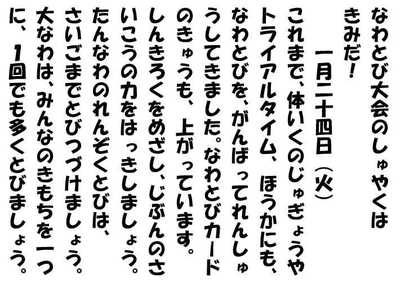 なわとび大会のしゅやくは
きみだ！
一月二十四日（火）
これまで、体いくのじゅぎょうや
トライアルタイム、ほうかにも、
なわとびを、がんばってれんしゅ
うしてきました。なわとびカード
のきゅうも、上がっています。
しんきろくをめざし、じぶんのさ
いこうの力をはっきしましょう。
たんなわのれんぞくとびは、
さいごまでとびつづけましょう。
大なわは、みんなのきもちを一つ
に、１回でも多くとびましょう。